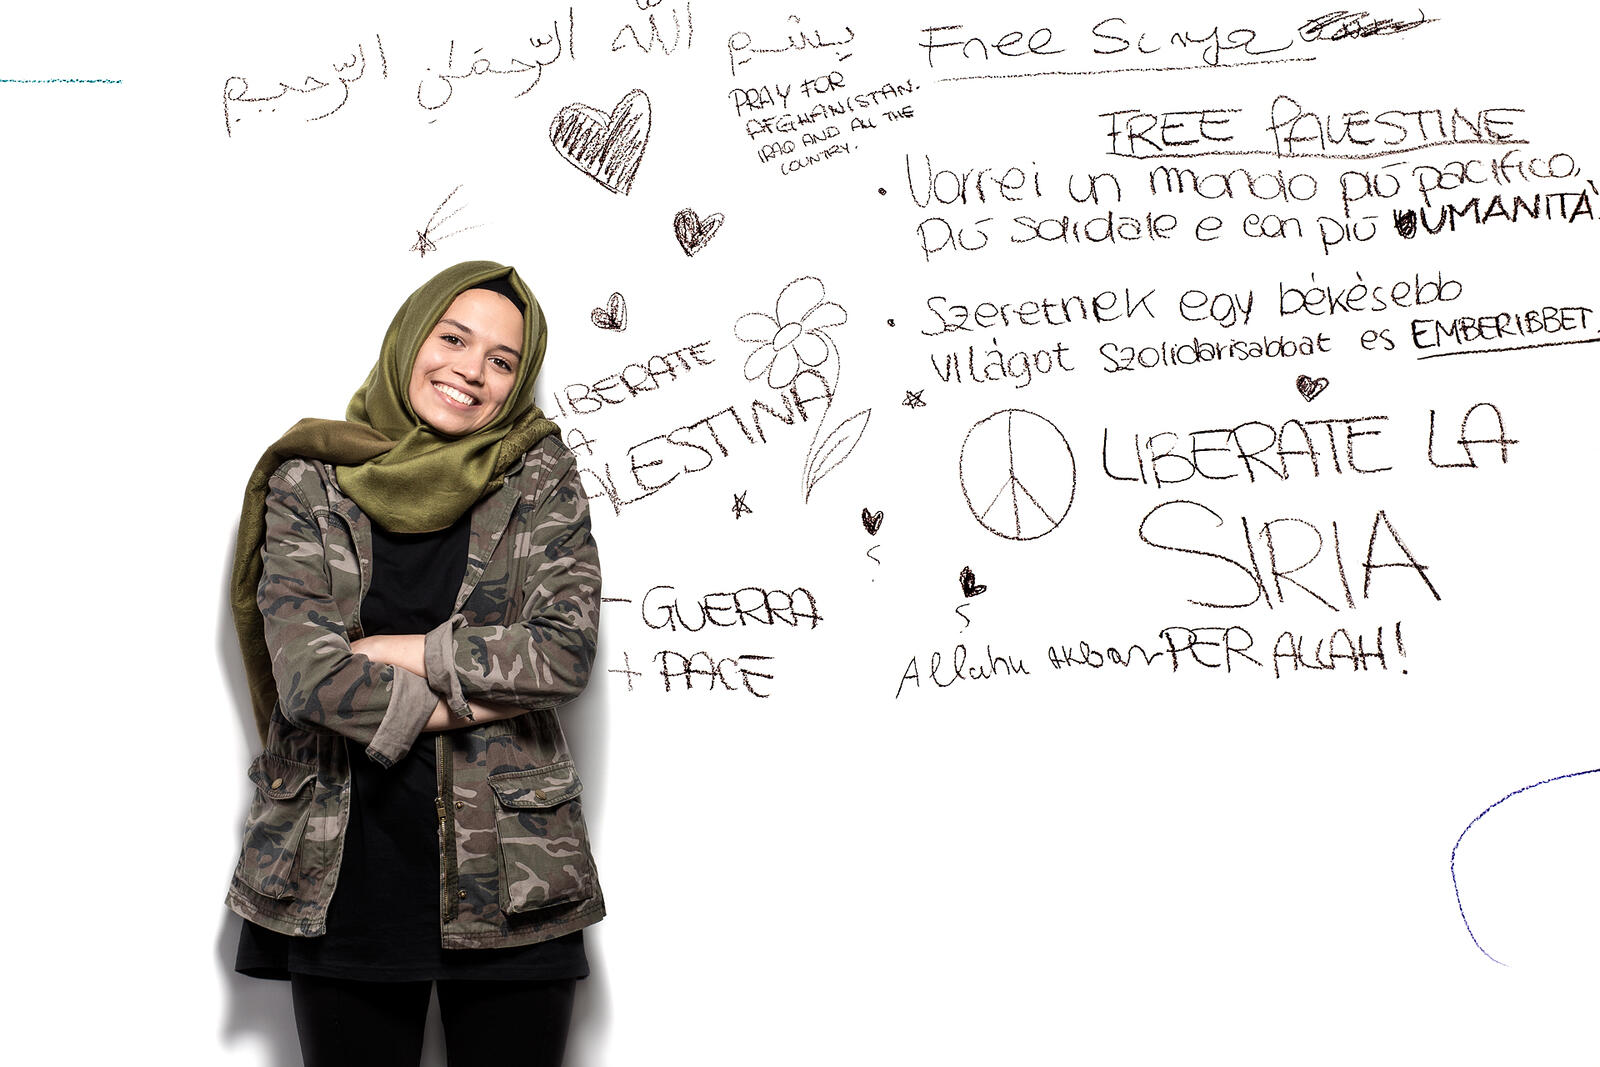 بِسْمِ اللّٰه الرّحمٰن الرّحيم
Free Surya
PRAY FOR
AFGHANISTAN.
IRAQ AND ALL THE
COUNTRY.
FREE PALESTINE
• Vorrei un mondo più pacifico,
più solidale e con più UMANITÀ.
• Szeretnék egy békèsebb
világot szolidarisabbat es EMBERIBBET.
LIBERATE
LA
PALESTINA
LIBERATE LA
SIRIA
- GUERRA
+ PACE
Allahu Akbar PER ALLAH!